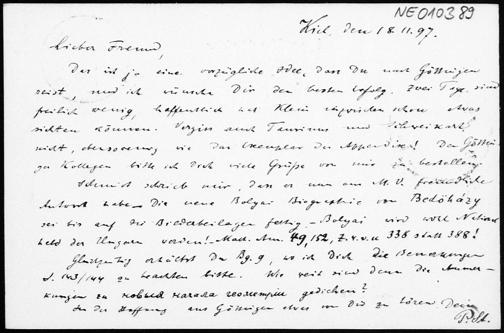 NE010389
Kiel, den 18.11.97.
Lieber Freund,
Das ist ja eine vorzügliche Idee, dass Du nach Göttingen
reist, und ich wünsche Dir den besten Erfolg. Zwei Tage sind
freilich wenig, hoffentlich hat Klein inzwischen schon etwas
sichten können. Vergiss auch Taurinus und Schweikart
nicht, ebensowenig wie das Exemplar des Appendix! Den Göttin
ger Kollegen bitte ich Dich viele Grüße von mir zu bestellen.
Schmidt schrieb mir, dass er nun am M.V. freundliche
Antwort habe. Die neue Bolyai Biographie von Bedöházy
sei bis auf die Bilderbeilagen fertig. Bolyai wird wohl National
held der Ungarn werden! Math. Ann. 49, 152, Z. 4. v. u. 338 statt 388!
Gleichzeitig erhältst Du Bg. 9, wo ich Dich die Bemerkungen
S. 143/144 zu beachten bitte. Wie weit sind denn die Anmer-
kungen zu новыя начала геометріи gediehen?
In der Hoffnung aus Göttingen etwas von Dir zu hören Dein
P. St.